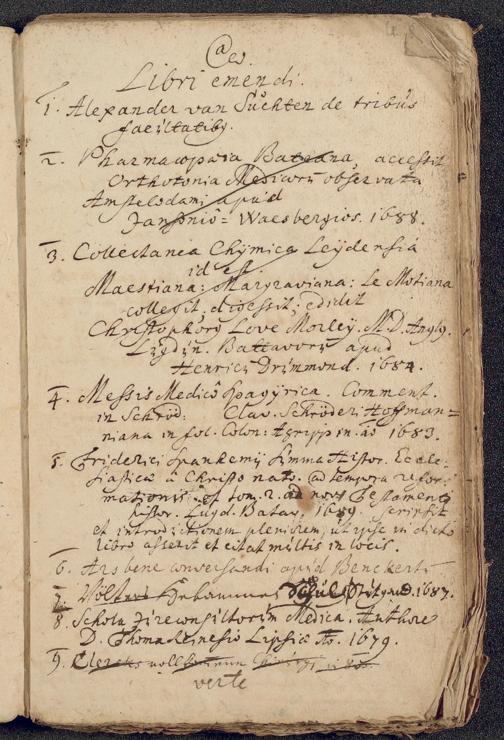 Libri emendi.
1. Alexander van Suchten de tribus
facultatibus.
2. Pharmacopœia Bateana, accessit
Orthotonia Medicorum observata
Amstelodami apud
Jansonio= Waesbergios. 1688.
3. Collectanea Chymica Leydensia
id est.
Maestiana: Margraviana: Le Motiana
collegit, digessit, edidit
Christophorus Love Morley. M.D. Anglus.
Lugdun. Battavorum apud
Henricum Drummond. 1684.
4. Messis Medico spagÿrica. Comment.
in Schröd: Clav. Schröderi Hoffman=
niana in fol. Colon: Agrippin. ao 1683.
5. Friderici Spanhemij Summa Histor. Eccle=
siastica a Christo nato. ad tempora refor=
mationis. et tom. 2. ad novum Testamentum
histor. Lugd. Batav. 1689. scripsit
et introductionem pleniorem, ut ipse in dicto
libro asserit et citat multis in locis.
6. Ars bene conversandi apud Benckert
7. Völters Hebammen Schul Stutgard. 1687.
8. Schola Jureconsultorum Medica. Authore
D. Thoma Reinesio Lipsiæ Ao. 1679.
9.
verte